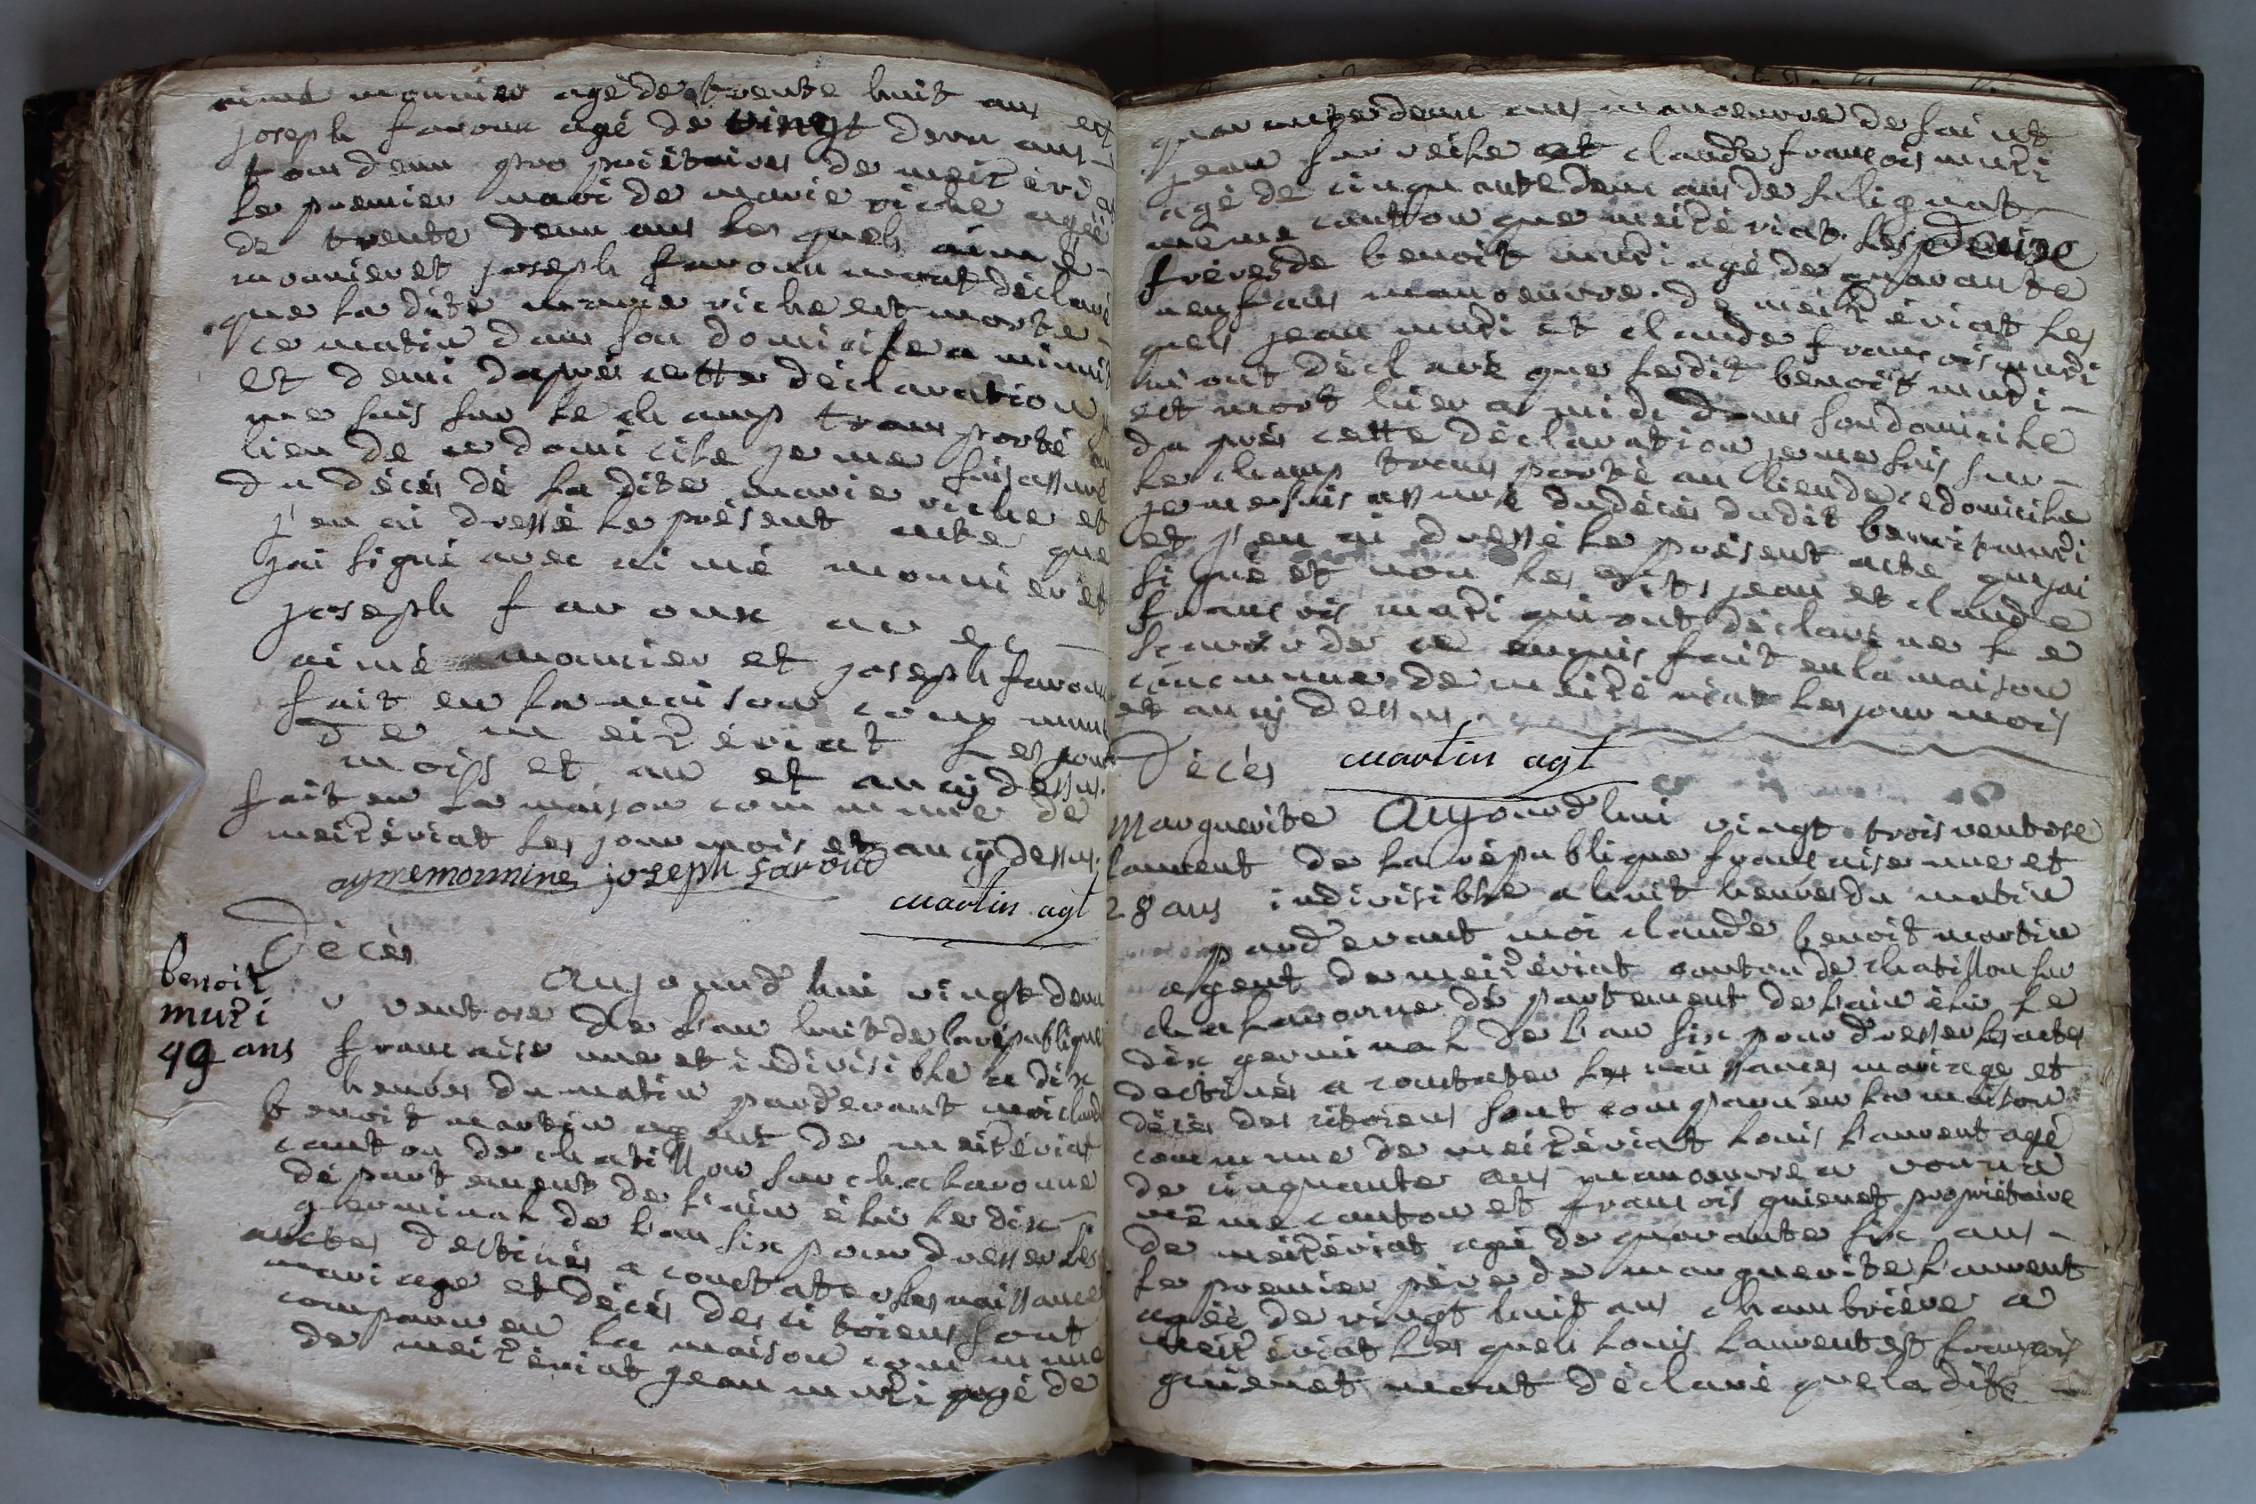 aimé monnier agé de trente huit ans et
joseph favoux agé de vingt deux ans
tous deux propriétaires de meizériat
le premier mari de marie riche agée
de trente deux ans les quels aimé
monnier et joseph favoux m'ont déclaré
que la dite marie riche est morte
ce matin dans son domicile a minuit
et demi dapres cette déclaration je
me suis sur le champ trans porté au
lieu de ce domicile je me suis assuré
du décés de la dite marie riche et
j'en ai dressé le présent acte que
jai signé avec aimé monnier et
joseph favoux avec
aimé monnier et joseph favoux
fait en la maison commune
de meizériat les jour
mois et an et an cy dessus.
fait en la maison commune de
meizériat les jour mois et an cy dessus.
aymemonnine joseph favoud
martin agt
Décés
benoit
muzi
49 ans
Aujourd'hui vingt deux
ventose de l'an huit de la république
francaise une et indivisible a dix
heures du matin pardevant moi claude
benoit martin agent de meizériat
canton de chatillon sur chalaronne
département de l'ain élu le dix
germinal de l'an six pour dresser les
actes destinés a constater les naissance
mariage et décés des citoiens sont
comparu en la maison commune
de meizériat jean muzi agé de
quarante deux ans manoeuvre de saint
jean sur veile et claude francois muzi
agé de cinquante deux ans de sulignat
même canton que meizériat. les deux
fréres de benoit muzi agé de quarante
neuf ans manoeuvre. de meizériat les
quels jean muzi et claude francois muzi
m'ont déclaré que ledit benoit muzi
est mort hier a midi dans son domicile
da prés cette déclaration je me suis sur
le champ trans porté au lieu de ce domicile
je me suis assuré du décés dudit benoit muzi
et j'en ai dressé le présent acte que jai
signé et non les dits jean et claude
francois muzi qui ont déclaré ne le
scavoir de ce enquis fait en la maison
commune de meizériat les jour mois
et an cy dessus
martin agt
Décés
Marguerite
laurent
28 ans
Aujourd'hui vingt trois ventose
de la république française une et
indivisible a huit heures du matin
pardevant moi claude benoit martin
agent de meizériat canton de chatillon sur
chalaronne département de l'ain élu le
dix germinal de l'an six pour dresser les actes
destinés a constater les naissances mariage et
décés des citoiens sont comparu en la maison
commune de meizériat louis laurent agé
de cinquante ans manoeuvre a vonna
même canton et francois guienet propriétaire
de meizériat agé de quarante six ans
le premier pére de marguerite laurent
agée de vingt huit ans chambriére a
meizériat les quels louis laurent et françois
guienet m'ont déclaré que la dite